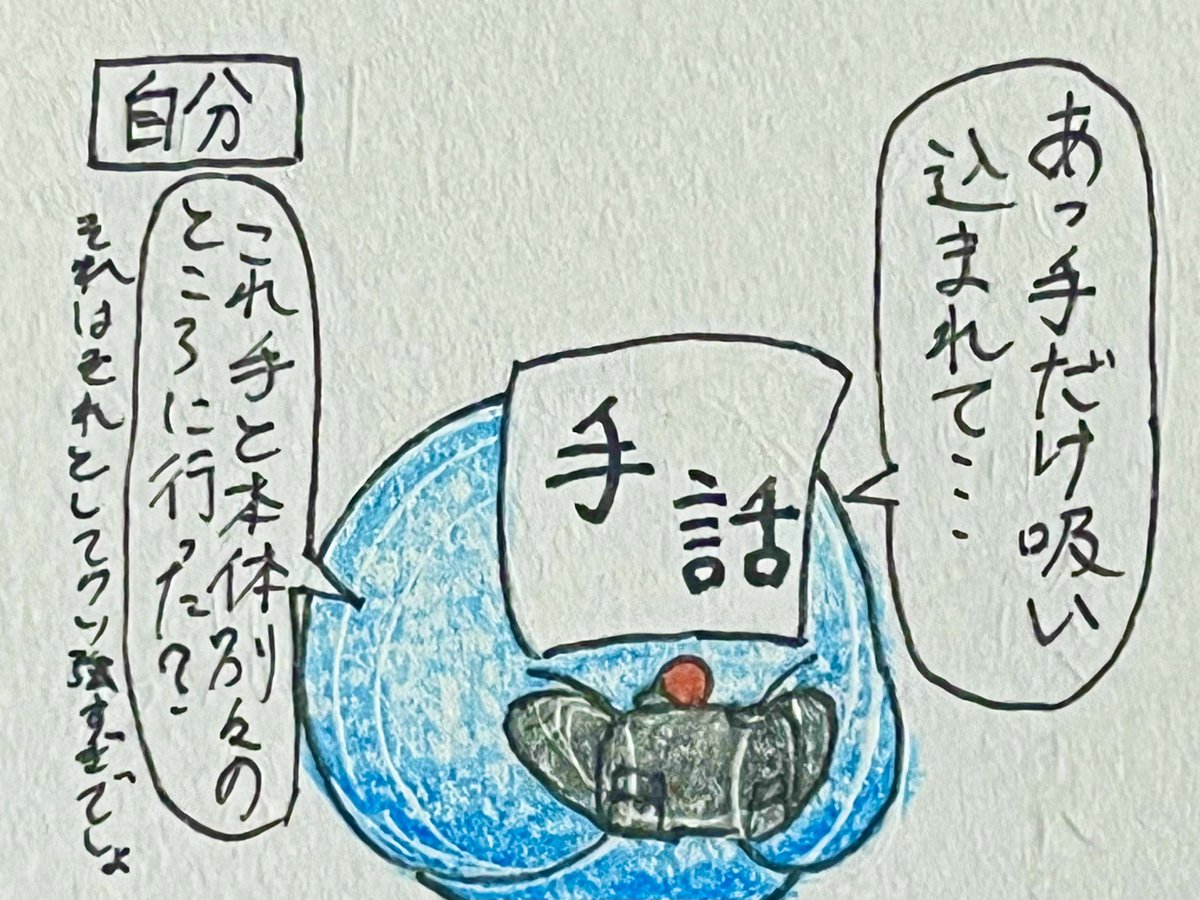 あっ手だけ吸い
込まれて…
手話
自分
これ手と本体別々の
ところに行った?
それはそれとしてワい強すぎでしょ